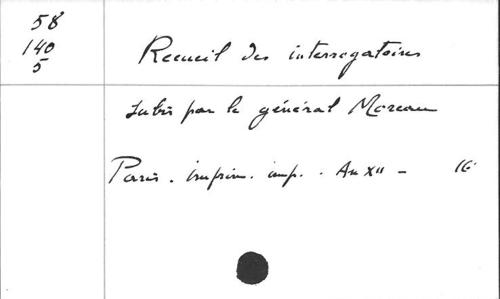 58
140
5
Recueil des interrogatoires
subis par le général Moreau
Paris. imprim. imp. . An XII – 16°